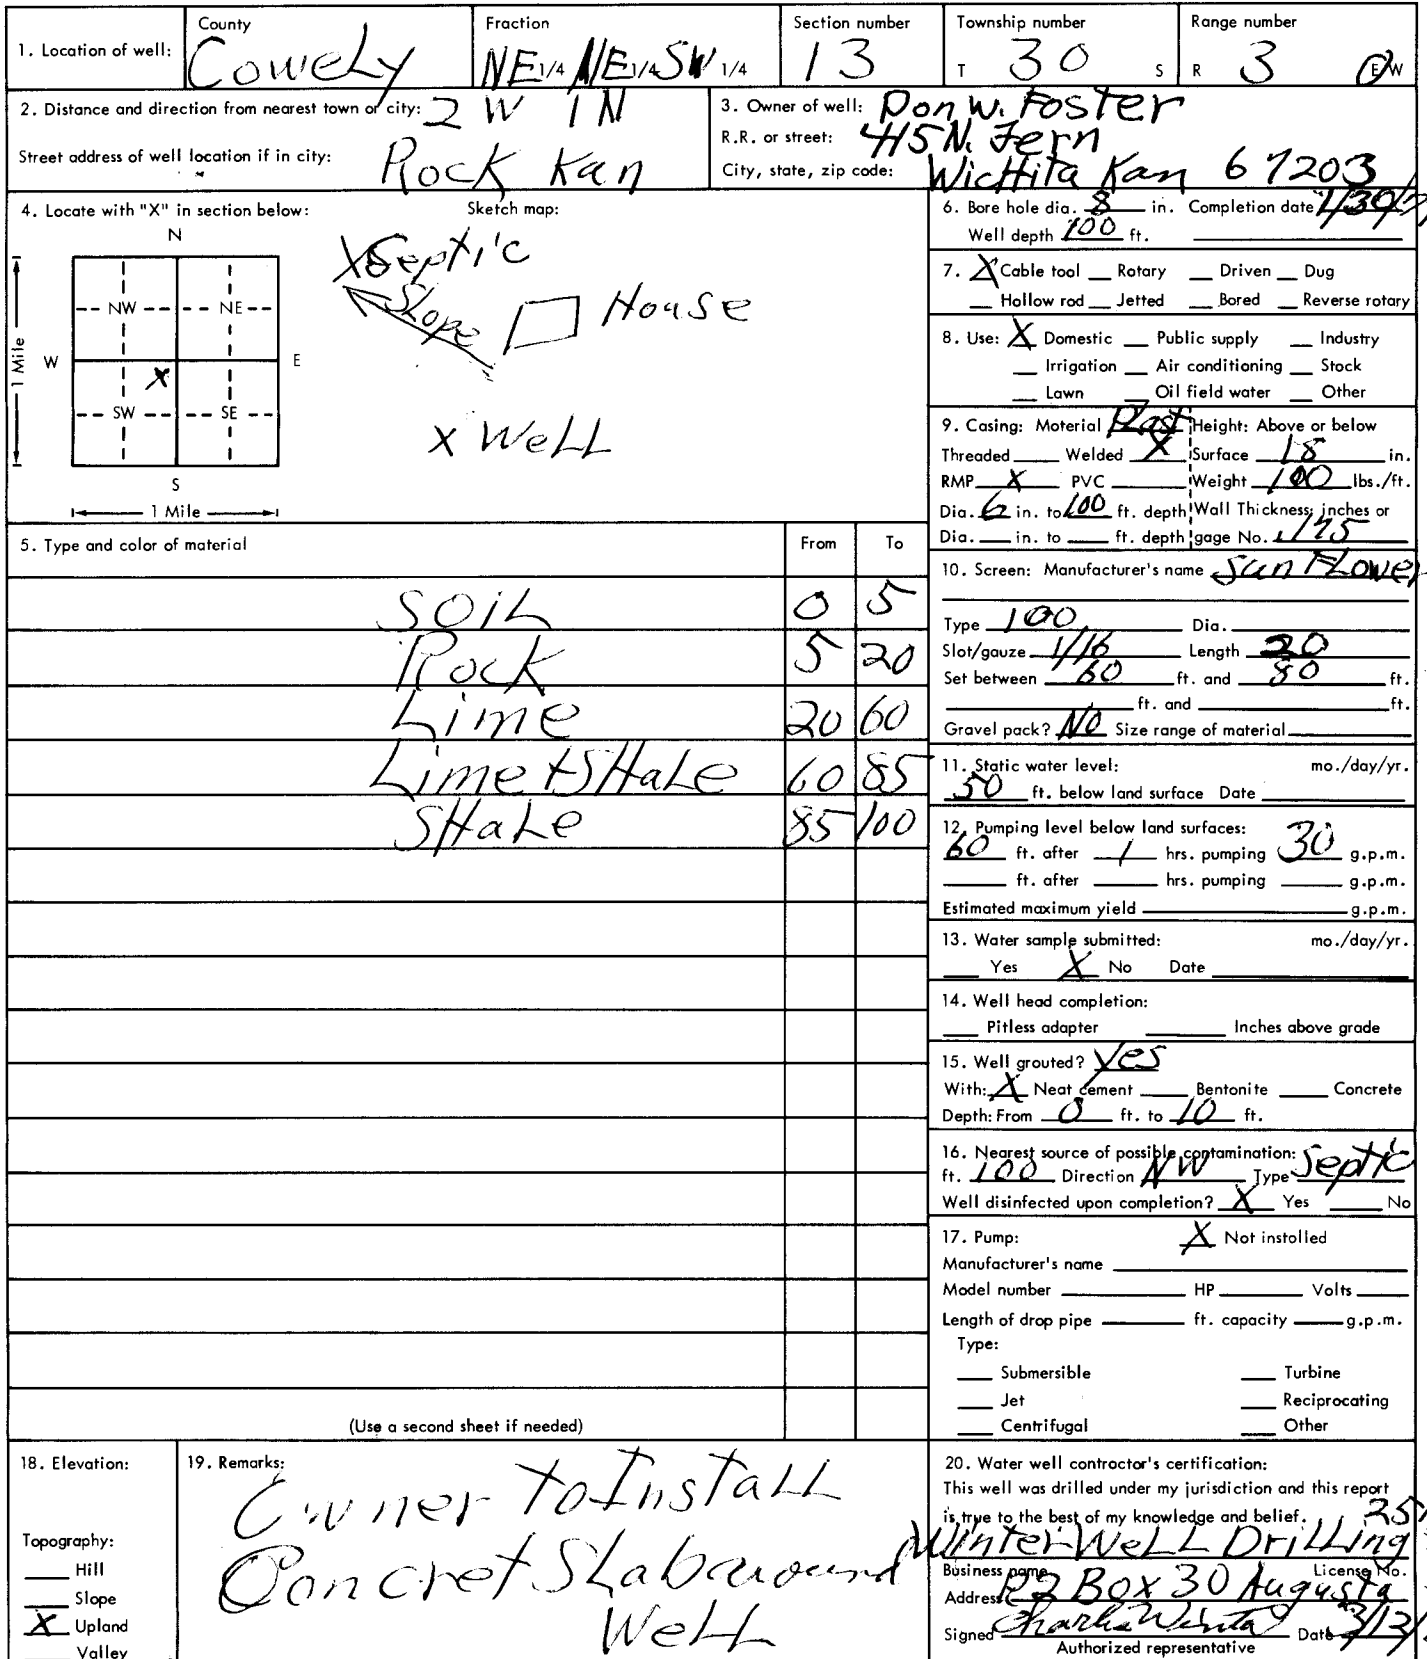 1. Location of well: County Cowely Fraction NE 1/4 NE 1/4 SW 1/4 Section number 13 Township number T 30 S Range number R 3 E W
2. Distance and direction from nearest town or city: 2 W 1 N
Street address of well location if in city: Rock Kan
3. Owner of well: Don W. Foster
R.R. or street: 415 N. Fern
City, state, zip code: Wichita Kan 67203
4. Locate with "X" in section below: Sketch map:
N
NW NE
W E
X
SW SE
S
1 Mile
1 Mile
X Septic
Slope
House
X Well
5. Type and color of material From To
Soil 0 5
Rock 5 20
Lime 20 60
Lime + SHale 60 85
SHale 85 100
(Use a second sheet if needed)
6. Bore hole dia. 8 in. Completion date 1/30/
Well depth 100 ft.
7. X Cable tool __ Rotary __ Driven __ Dug
__ Hollow rod __ Jetted __ Bored __ Reverse rotary
8. Use: X Domestic __ Public supply __ Industry
__ Irrigation __ Air conditioning __ Stock
__ Lawn __ Oil field water __ Other
9. Casing: Material Plast Height: Above or below
Threaded ___ Welded X Surface 18 in.
RMP X PVC ___ Weight 100 lbs./ft.
Dia. 6 in. to 100 ft. depth Wall Thickness: inches or
Dia. __ in. to __ ft. depth gage No. .175
10. Screen: Manufacturer's name SunFlower
Type 100 Dia.
Slot/gauze 1/16 Length 20
Set between 60 ft. and 80 ft.
___ ft. and ___ ft.
Gravel pack? No Size range of material
11. Static water level: mo./day/yr.
50 ft. below land surface Date
12. Pumping level below land surfaces:
60 ft. after 1 hrs. pumping 30 g.p.m.
___ ft. after ___ hrs. pumping ___ g.p.m.
Estimated maximum yield ___ g.p.m.
13. Water sample submitted: mo./day/yr.
__ Yes X No Date
14. Well head completion:
__ Pitless adapter ___ Inches above grade
15. Well grouted? Yes
With: X Neat cement __ Bentonite __ Concrete
Depth: From 0 ft. to 10 ft.
16. Nearest source of possible contamination:
ft. 100 Direction NW Type Septic
Well disinfected upon completion? X Yes __ No
17. Pump: X Not installed
Manufacturer's name
Model number ___ HP ___ Volts ___
Length of drop pipe ___ ft. capacity ___ g.p.m.
Type:
__ Submersible __ Turbine
__ Jet __ Reciprocating
__ Centrifugal __ Other
18. Elevation:
Topography:
__ Hill
__ Slope
X Upland
__ Valley
19. Remarks:
Owner to Install
Concret Slab around
Well
20. Water well contractor's certification:
This well was drilled under my jurisdiction and this report
is true to the best of my knowledge and belief.
Winter Well Drilling
Business name License No.
Address R2 Box 30 Augusta
Signed Charlie Winter Date 3/13/
Authorized representative